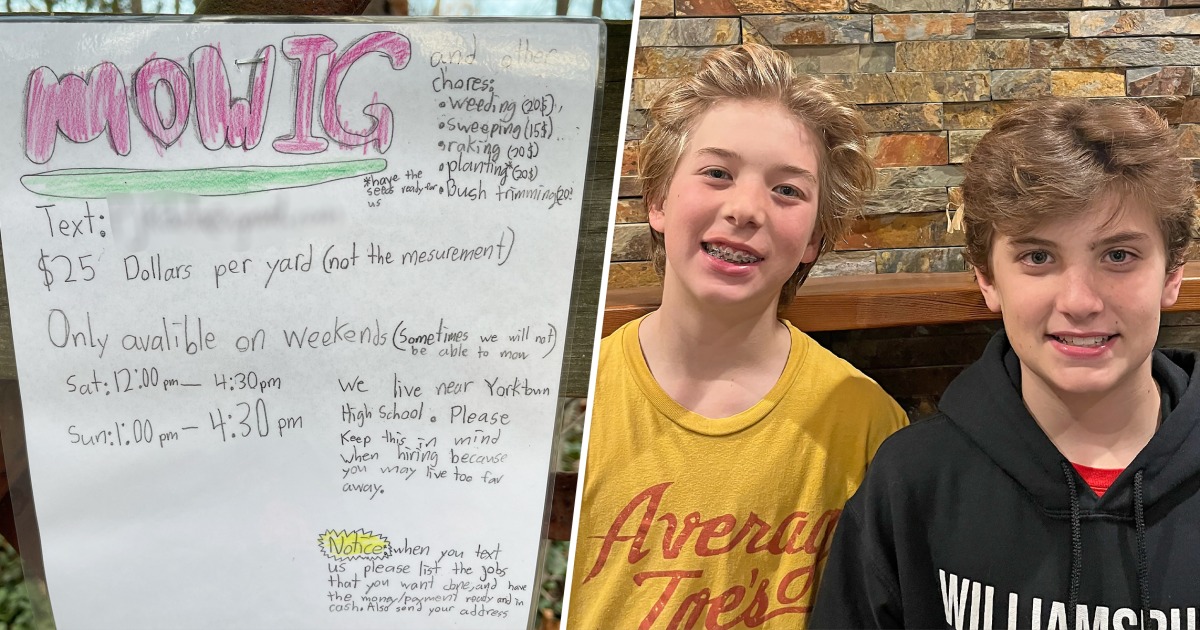 MOWIG
and other
chores:
• weeding (20$)
• sweeping (15$)
• raking (20$)
• planting* (20$)
• Bush trimming (20$
*have the
seeds ready for
us
Text:
$25 Dollars per yard (not the mesurement)
Only avalible on weekends (sometimes we will not
be able to mow)
Sat: 12:00 pm — 4:30pm
Sun: 1:00 pm — 4:30 pm
we live near Yorktown
High School. Please
keep this in mind
when hiring because
you may live too far
away.
Notice: when you text
us please list the jobs
that you want done, and have
the money/payment ready and in
cash. Also send your address
Averag
Joe's
WILLIAMSBU